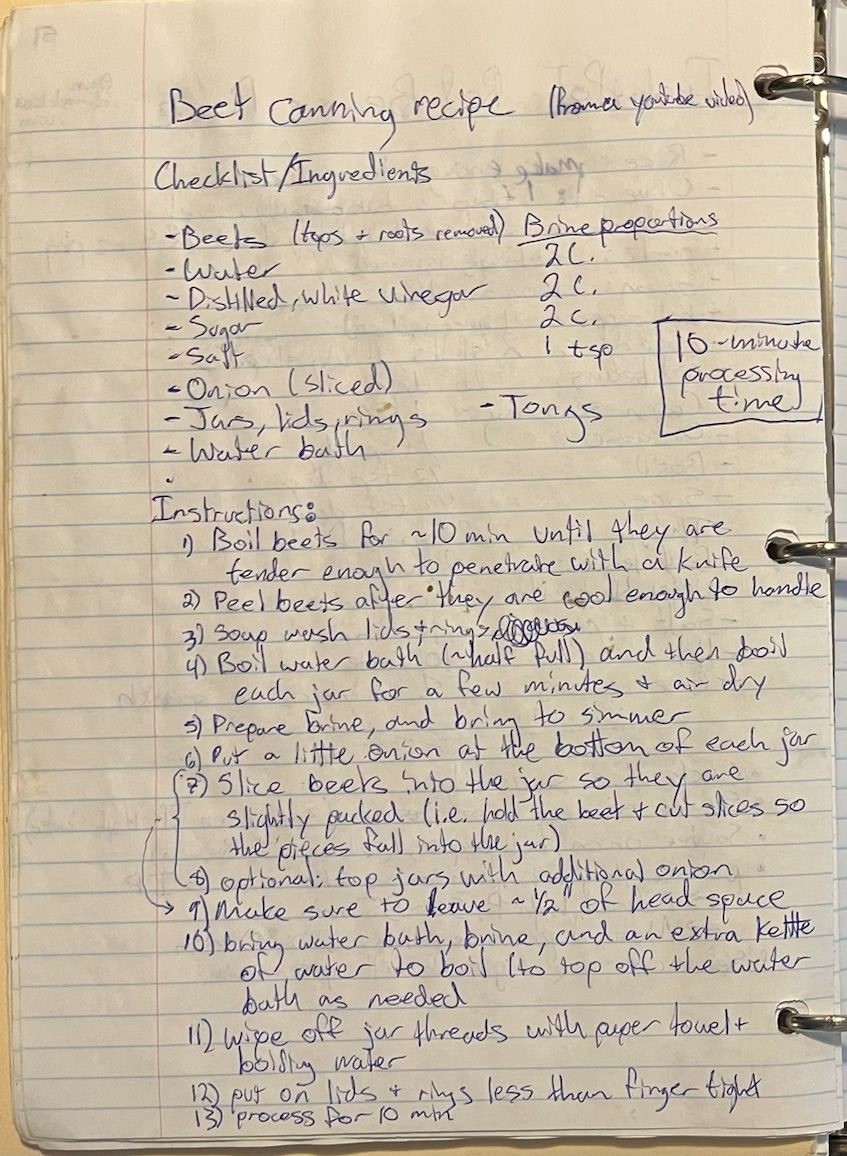 Beet Canning recipe (from a youtube video)
Checklist/Ingredients
- Beets (tops + roots removed) Brine proportions
- Water 2 C.
- Distilled, white vinegar 2 C.
- Sugar 2 C.
- Salt 1 tsp
10-minute
processing
time
- Onion (sliced)
- Jars, lids, rings - Tongs
- Water bath
Instructions:
1) Boil beets for ~10 min until they are
tender enough to penetrate with a knife
2) Peel beets after they are cool enough to handle
3) Soap wash lids + rings
4) Boil water bath (~half full) and then boil
each jar for a few minutes + air dry
5) Prepare brine, and bring to simmer
6) Put a little onion at the bottom of each jar
7) Slice beets into the jar so they are
slightly packed (i.e. hold the beet + cut slices so
the pieces fall into the jar)
8) optional: top jars with additional onion
9) Make sure to leave ~ 1/2" of head space
10) bring water bath, brine, and an extra kettle
of water to boil (to top off the water
bath as needed
11) wipe off jar threads with paper towel +
boiling water
12) put on lids + rings less than finger tight
13) process for 10 min